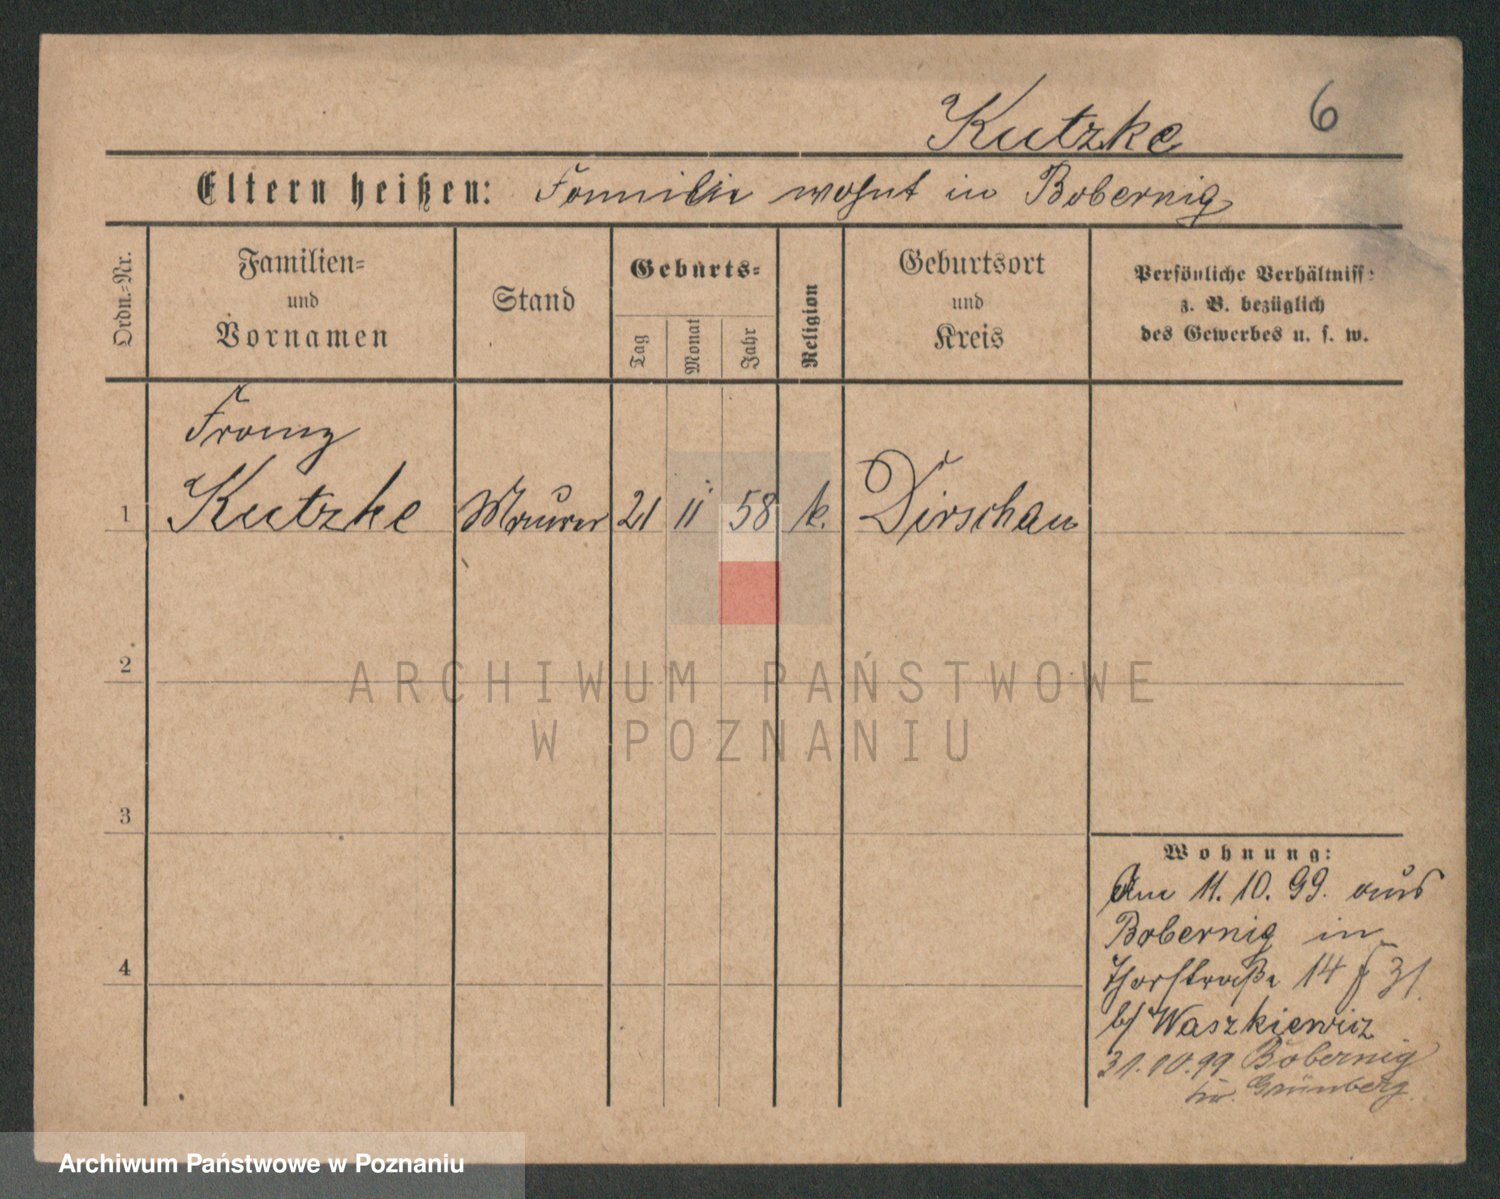 Kutzke
6
Eltern heißen: Familie wohnt in Bobernig
Ordn.-Nr.
Familien-
und
Vornamen
Stand
Geburts-
Tag
Monat
Jahr
Religion
Geburtsort
und
Kreis
Persönliche Verhältniss:
z. B. bezüglich
des Gewerbes u. s. w.
Franz
1 Kutzke Maurer 21 11 58 k. Dirschau
2
3
4
Wohnung:
Am 11. 10. 99. aus
Bobernig in
Thorstraße 14 31
b/ Waszkiewicz
31.10.99 Bobernig
Kr. Grünberg
ARCHIWUM PAŃSTWOWE
W POZNANIU
Archiwum Państwowe w Poznaniu